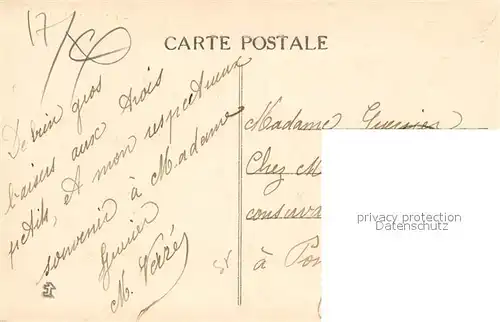 17/
CARTE POSTALE
gros
baisers aux trois
petits, et mon respectueux
souvenir à Madame
Guerrier
M. Verré
Madame Guerrier
Chez M
conserva
à Pon
privacy protection
Datenschutz